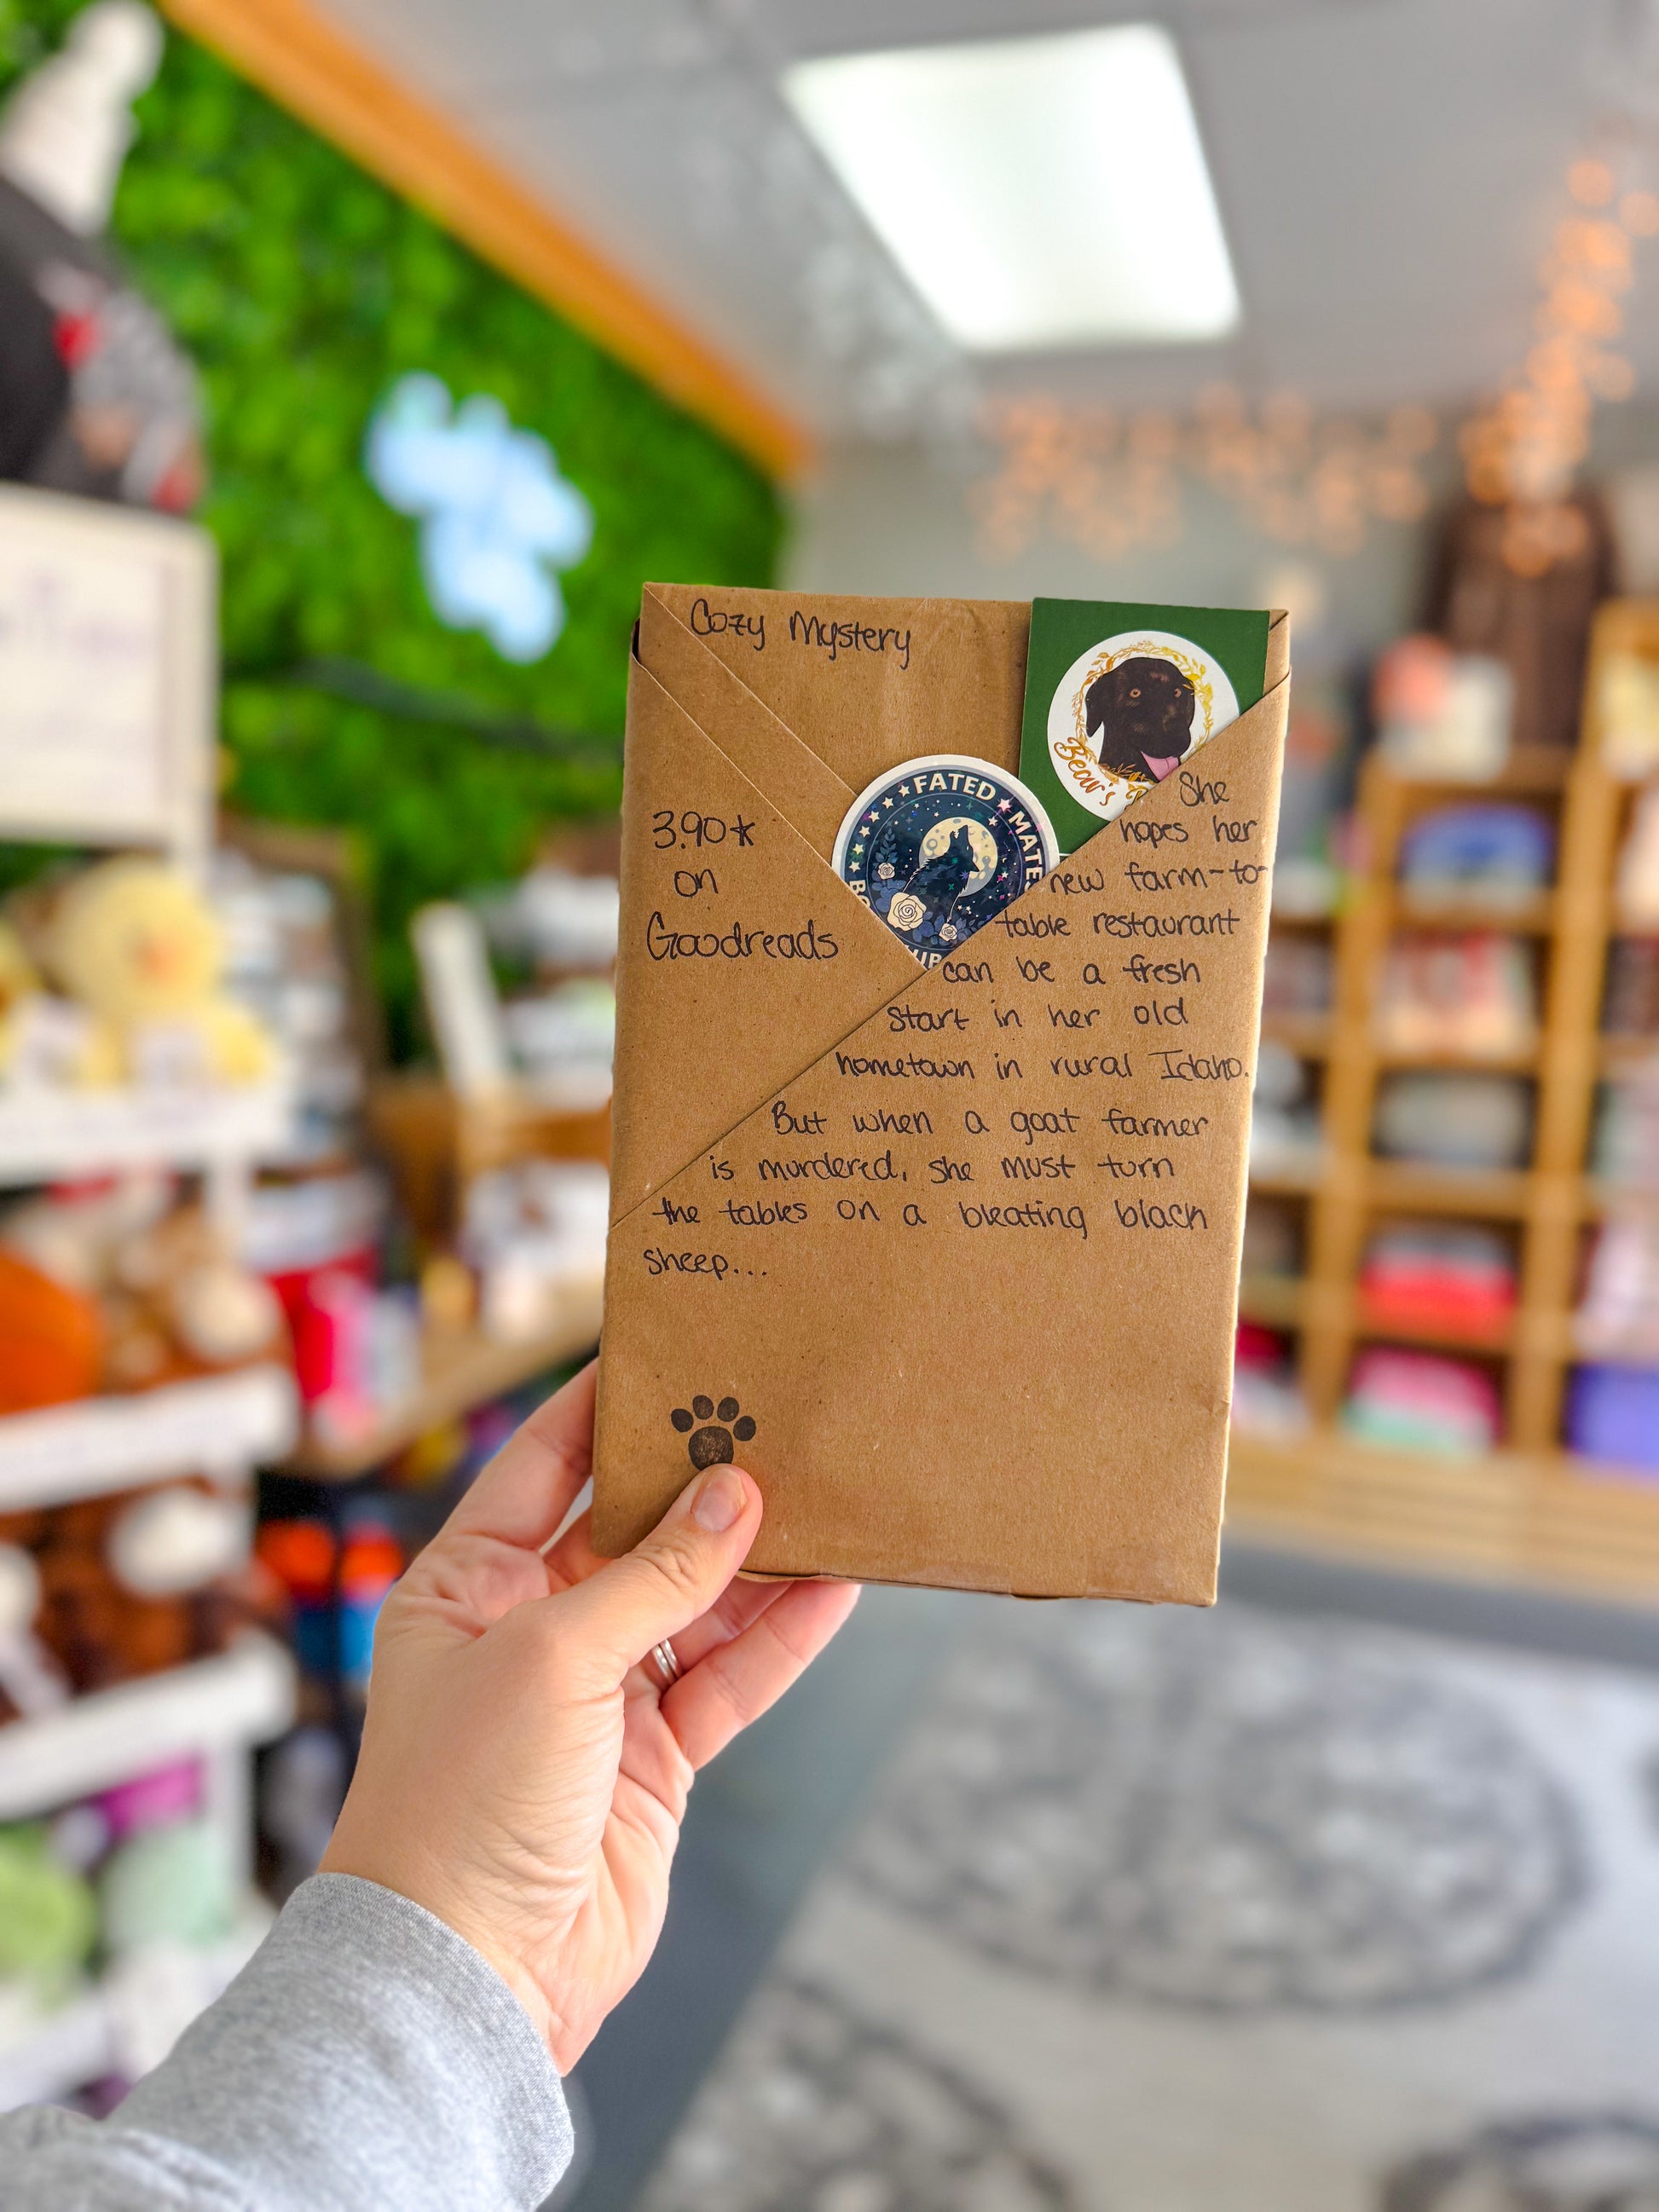 Cozy Mystery
3.90*
on
Goodreads
FATED
MATE
BO
UR
Bear's
She
hopes her
new farm-to-
table restaurant
can be a fresh
start in her old
hometown in rural Idaho.
But when a goat farmer
is murdered, she must turn
the tables on a bleating black
sheep...